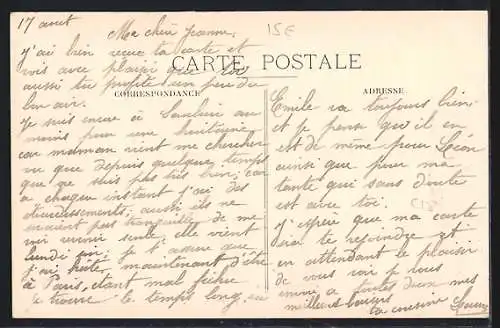 17 août
15E
Ma chère Jeanne,
J'ai bien reçu ta carte et
vois avec plaisir que toi
aussi tu profite un peu du
bon air.
CARTE POSTALE
CORRESPONDANCE
ADRESSE
Je suis encore à au
moins pour une huitaine
car maman vient me chercher
vu que depuis quelques temps
que ne suis pas très bien, car
à chaque instant j'ai des
étourdissements, aussi ils ne
pas tranquille de me
voir revenir seule elle vient
lundi je t'assure que
j'ai hâte maintenant d'être
à Paris, étant mal fichue
je trouve le temps long
Emile va toujours bien
et je pense qu'il en
est de même pour Léon
ainsi que pour ma
tante qui sans doute
est avec toi.
J'espère que ma carte
ira te rejoindre et
en attendant le plaisir
de vous voir je vous
envoi à toutes deux mes
meilleurs baisers
ta cousine